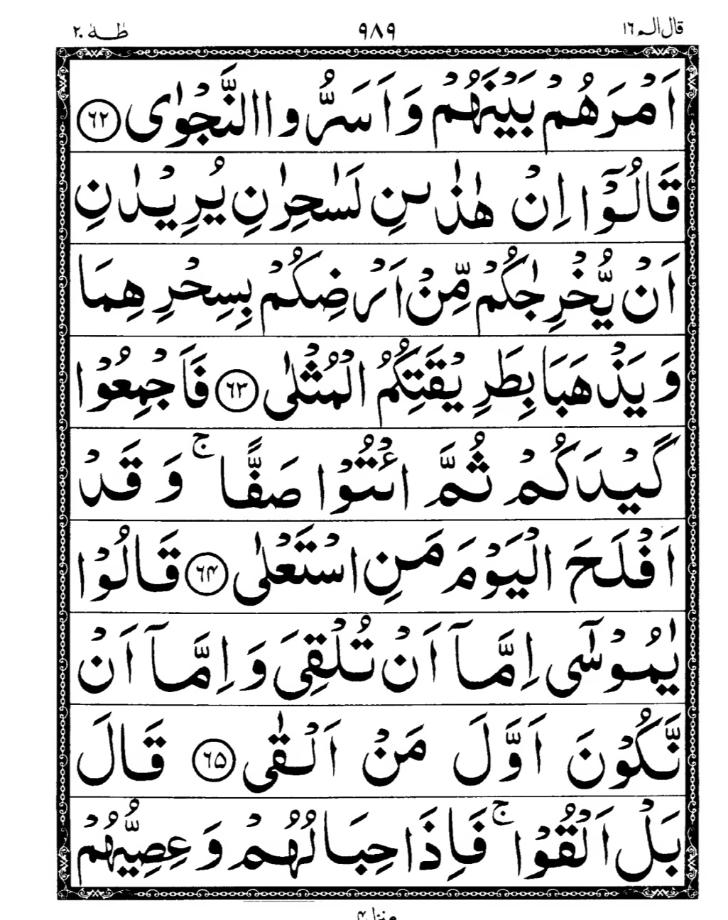 قال الم ١٦ ٩٨٩ طٰهٰ ٢٠
اَمْرَهُمْ بَيْنَهُمْ وَاَسَرُّوا النَّجْوٰى ﴿٦٢﴾
قَالُوْۤا اِنْ هٰذٰىنِ لَسٰحِرٰنِ يُرِيْدٰنِ
اَنْ يُّخْرِجٰكُمْ مِّنْ اَرْضِكُمْ بِسِحْرِهِمَا
وَيَذْهَبَا بِطَرِيْقَتِكُمُ الْمُثْلٰى ﴿٦٣﴾ فَاَجْمِعُوْا
كَيْدَكُمْ ثُمَّ ائْتُوْا صَفًّا ۚ وَقَدْ
اَفْلَحَ الْيَوْمَ مَنِ اسْتَعْلٰى ﴿٦٤﴾ قَالُوْا
يٰمُوْسٰۤى اِمَّاۤ اَنْ تُلْقِىَ وَاِمَّاۤ اَنْ
نَّكُوْنَ اَوَّلَ مَنْ اَلْقٰى ﴿٦٥﴾ قَالَ
بَلْ اَلْقُوْا ۚ فَاِذَا حِبَالُهُمْ وَعِصِيُّهُمْ
منزل ٤